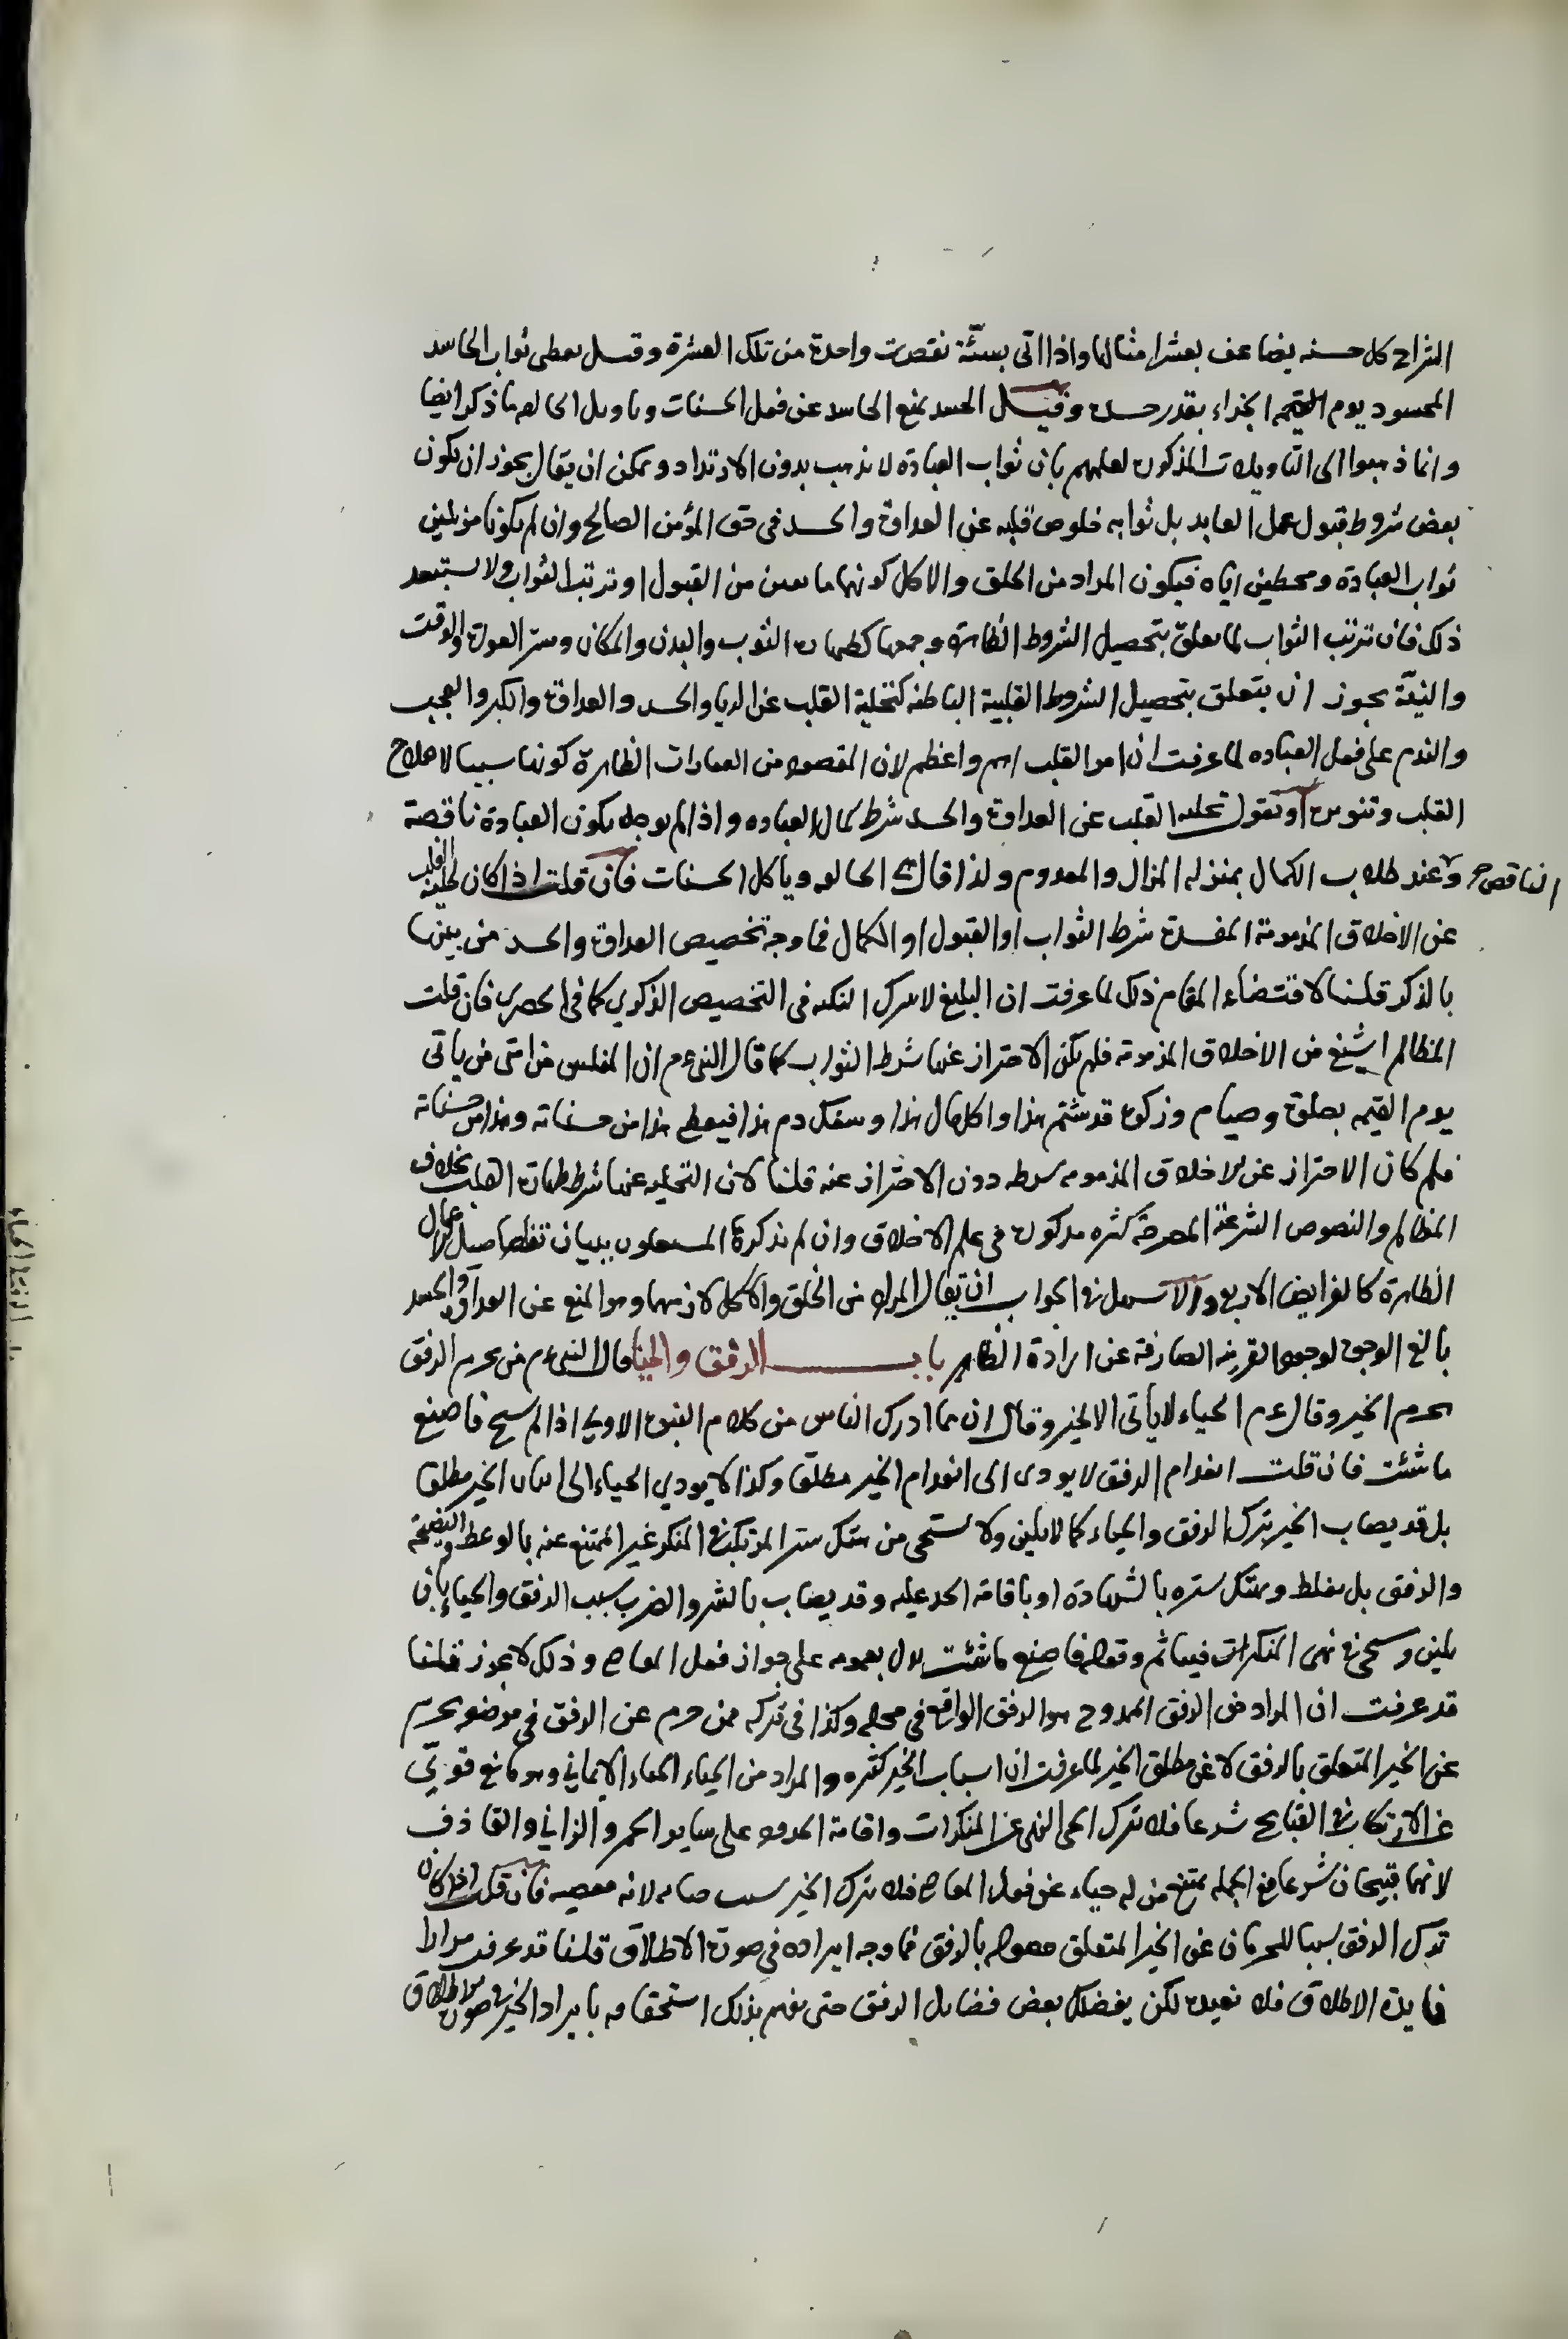 الشراح كل حسنة يضاعف بعشر امثالها واذا اتى بسيّئة نقصت واحدة من تلك العشرة وقيل يعطى ثواب الحاسد
المحسود يوم القيمة الجزاء بقدر حسده وقيل الحسد يمنع الحاسد عن فعل الحسنات وتاويل الحالقه ما ذكر ايضا
وانما ذهبوا الى التاويلات المذكورة لعلمهم بان ثواب العبادة لا يذهب بدون الارتداد ويمكن ان يقال يجوز ان يكون
بعض شروط قبول عمل العابد بل ثوابه خلوص قلبه عن العداوة والحسد في حق المؤمن الصالح وان لم يكونا مزيلين
ثواب العبادة ومحبطين اياه فيكون المراد من الحلق والاكل كونهما مانعين من القبول او ترتب الثواب ولا يستبعد
ذلك فان ترتب الثواب لما تعلق بتحصيل الشروط الظاهرة وجمعها كطهارة الثوب والبدن والمكان وستر العورة والوقت
والنيّة يجوز ان يتعلق بتحصيل الشروط القلبية الباطنه كتخلية القلب عن الريا والحسد والعداوة والكبر والعجب
والندم على فعل العباده لما عرفت ان امر القلب اهم واعظم لان المقصود من العبادات الظاهرة كونها سببا لاصلاح
القلب وتنويره او نقول تخلية القلب عن العداوة والحسد شرط كمال العباده واذا لم يوجد يكون العبادة ناقصة
الناقص وعند طلاب الكمال بمنزله المزال والمعدوم ولذا قال هي الحالقه وياكل الحسنات فان قلت اذا كان تخلية القلب
عن الاخلاق المذمومة المفسدة شرط الثواب او القبول او الكمال فما وجه تخصيص العداوة والحسد من بينها
بالذكر قلنا لاقتضاء المقام ذلك لما عرفت ان البليغ لا يترك النكته في التخصيص الذكوري كما في الحصري فان قلت
المظالم اشنع من الاخلاق المذمومة فلم يكن الاحتراز عنها شرط الثواب كما قال النبي عم ان المفلس من امتي من ياتي
يوم القيمه بصلوة وصيام وزكوة قد شتم هذا واكل مال هذا وسفك دم هذا فيعطي هذا من حسناته وهذا من حسناته
فلم كان الاحتراز عن الاخلاق المذمومه شرطه دون الاحتراز عنه قلنا لان التخليه عنها شرط طهارة القلب بخلاف
المظالم والنصوص الشرعية المعرفة كثيره مذكورة في علم الاخلاق وان لم يذكره المشتغلون ببيان تفاصيل الاعمال
الظاهرة كالفرايض الاربع والاسهل في الجواب ان يقال المراد من الحلق والاكل لازمهما وهو المنع عن العداوة والحسد
بالغ الوجوه لوجود القرينه الصارفة عن ارادة الظاهر باب الرفق والحيا قال النبي عم من يحرم الرفق
يحرم الخير وقال عم الحياء لا ياتي الا بخير وقال ان مما ادرك الناس من كلام النبوة الاولى اذا لم تستح فاصنع
ما شئت فان قلت انعدام الرفق لا يودى الى انعدام الخير مطلقا وكذا لا يودي الحياء الى اتيان الخير مطلقا
بل قد يصاب الخير بترك الرفق والحياء كما لا يلين ولا يستحي من هتك ستر المرتكب في المنكر غير الممتنع عنه بالوعظ والنصيحة
والرفق بل يغلظ ويهتك ستره بالشهادة او باقامة الحد عليه وقد يصاب بالشر والضرب بسبب الرفق والحياء بان
يلين ويستحي في نهى المنكرات فيياثم وقوله فاصنع ما شئت يدل بعمومه على جواز فعل المعاصي وذلك لا يجوز قلنا
قد عرفت ان المراد من الرفق الممدوح هو الرفق الواقع في محله وكذا في تركه فمن حرم عن الرفق في موضعه يحرم
عن الخير المتعلق بالرفق لا عن مطلق الخير لما عرفت ان اسباب الخير كثيره والمراد من الحياء الحياء الايماني وهو مانع قويّ
عن الارتكاب في القبايح شرعا فلا يترك الحي النهى عن المنكرات واقامة الحدود على شارب الخمر والزاني والقاذف
لانها قبيحان شرعا في الجمله يمتنع من له حياء عن فعل المعاصي فلا يترك الخير بسبب حيائه لانه معصيه فان قلت اذا كان
ترك الرفق سببا للحرمان عن الخير المتعلق حصوله بالرفق فما وجه ايراده في صورة الاطلاق قلنا قد عرفت مرارا
فايدة الاطلاق فلا نعيده لكن يفضلك بعض فضايل الرفق حتى تفهم بذلك استحقاقه بايراد الخير في صورة الاطلاق